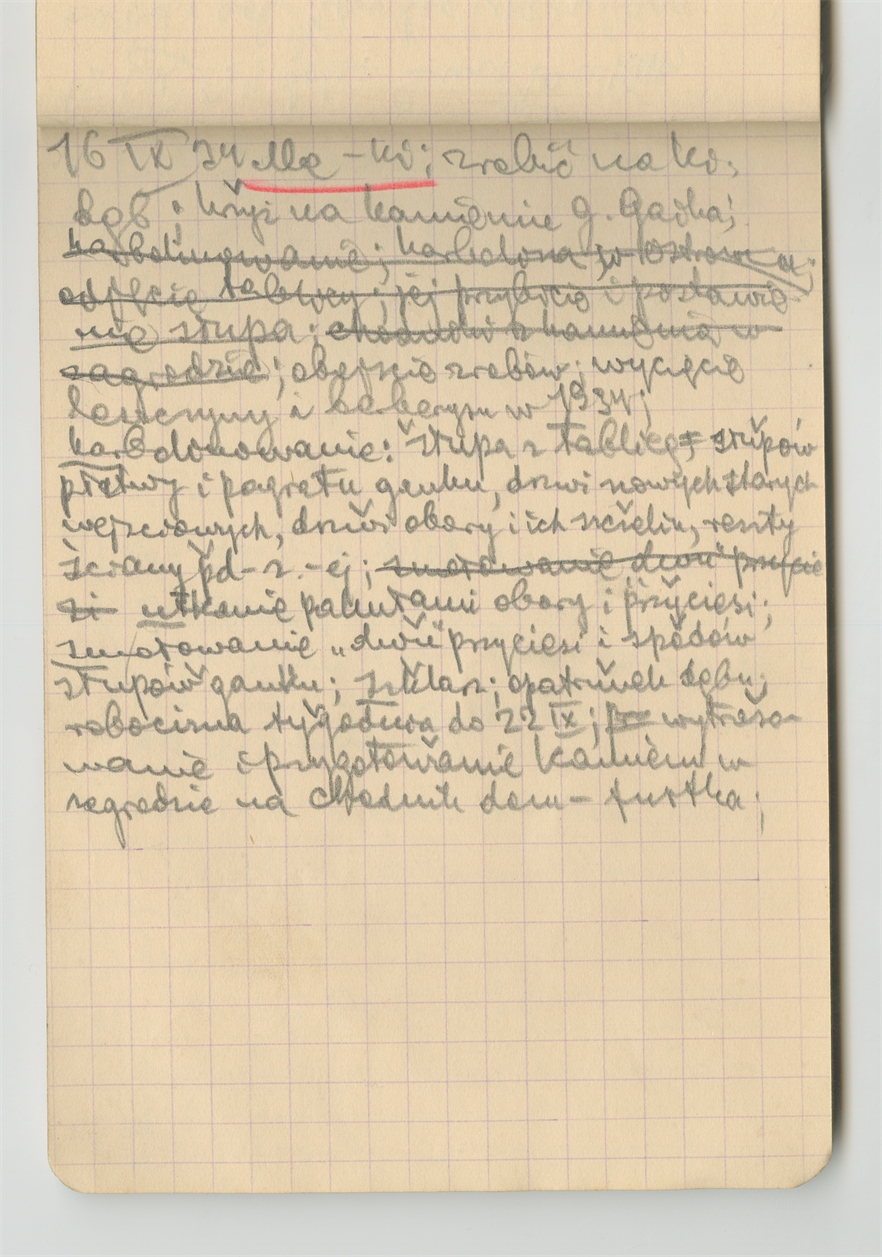 16 IX 34 Me-ki; zrobić na ki.
dąb; krzyż na kamieniu g. Gajka;
karbolinowanie; karbolona w Ostrow a;
odjęcie tablicy; jej przybycie i postawie
nie słupa; chodniki z kamienia w
zagrodzie; obejście zrębów; wycięcie
leszczyny i beberysu w 1934;
karbolonowanie: słupa z tablicą, słupów
płatwy i pozretu ganku, drzwi nowych starych
wejściowych, drzwi obory i ich szczelin, reszty
ściany pd-z.-ej; smołowanie dwu przycie
si utkanie pakułami obory i przyciesi;
smołowanie „dwu" przyciesi i spodów
słupów ganku; szklarz; opatrunek dębu;
robocizna tygodniowa do 22 IX; prz wytraso-
wanie i przygotowanie kamieni w
zagrodzie na chodnik dom - furtka;